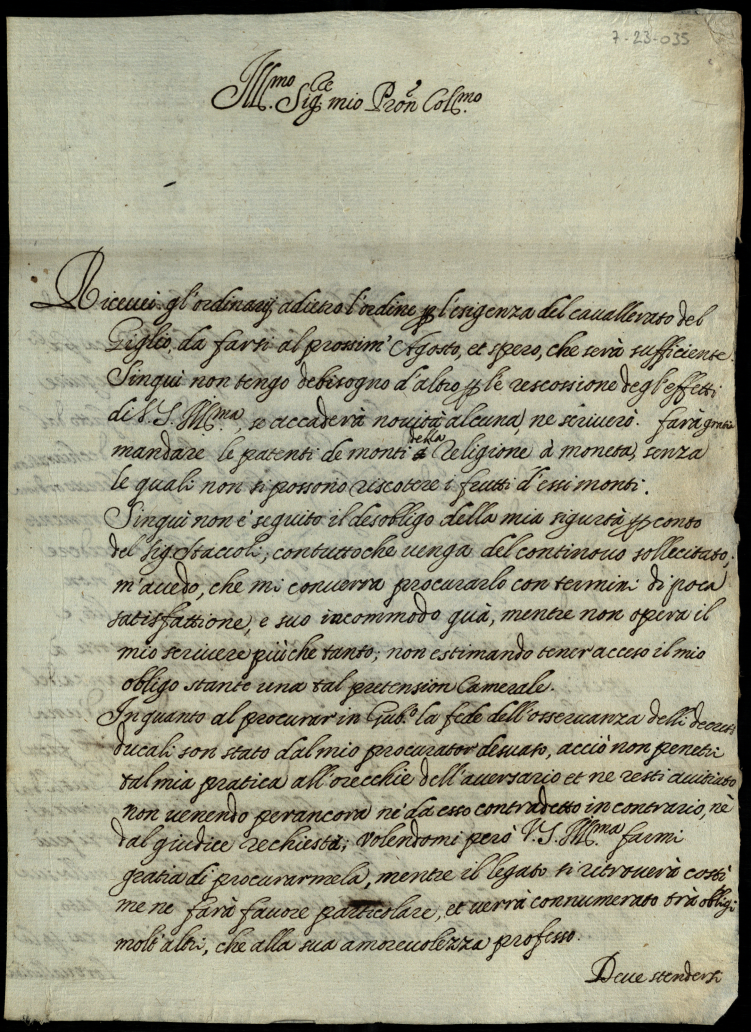 7-23-035
Ill.mo Sig.re mio Pron Col.mo
Ricevei gl'ordinarij adietro l'ordine per l'esigenza del cavallerato del
Giglio, da farsi al prossim' Agosto, et spero, che serà sufficiente.
Sinqui non tengo debisogno d'altro per le rescossione degl'effetti
di V. S. Ill.ma, se accaderà novità alcuna, ne scriverò. farà gratia
mandare le patenti de monti della religione à moneta, senza
le quali non si possono riscotere i frutti d'essi monti.
Sinqui non è seguito il desobligo della mia sigurtà per conto
del Sig. Staccioli; contuttoche venga del continovo sollecitato,
m'avedo, che mi converrà procurarlo con termini di poca
satisfattione, e suo incommodo quà, mentre non opera il
mio scrivere più che tanto; non estimando tener acceso il mio
obligo stante una tal pretension Camerale.
In quanto al procurar in Gub.o la fede dell'osservanza delli decreti
ducali son stato dal mio procurator desuato, acciò non penetri
tal mia pratica all'orecchie dell'aversario et ne resti avisato
non venendo perancora nè da esso contradetto in contrario, nè
dal giudice rechiesta; volendomi però V. S. Ill.ma farmi
gratia di procurarmela, mentre il legato si ritroverà costì
me ne farà favore particolare, et verrà connumerato trà oblighi
molt'altri, che alla sua amorevolezza professo.
Deve stendersi